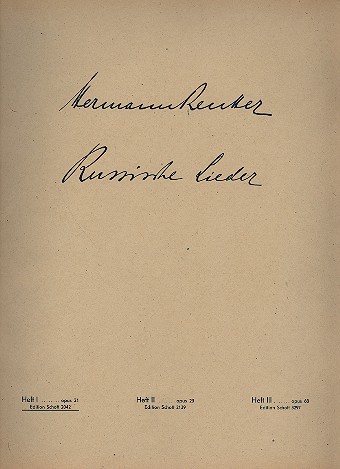 Hermann Reutter
Russische Lieder
Heft I ....... opus 21 Heft II ....... opus 23 Heft III ...... opus 68
Edition Schott 2042 Edition Schott 2139 Edition Schott